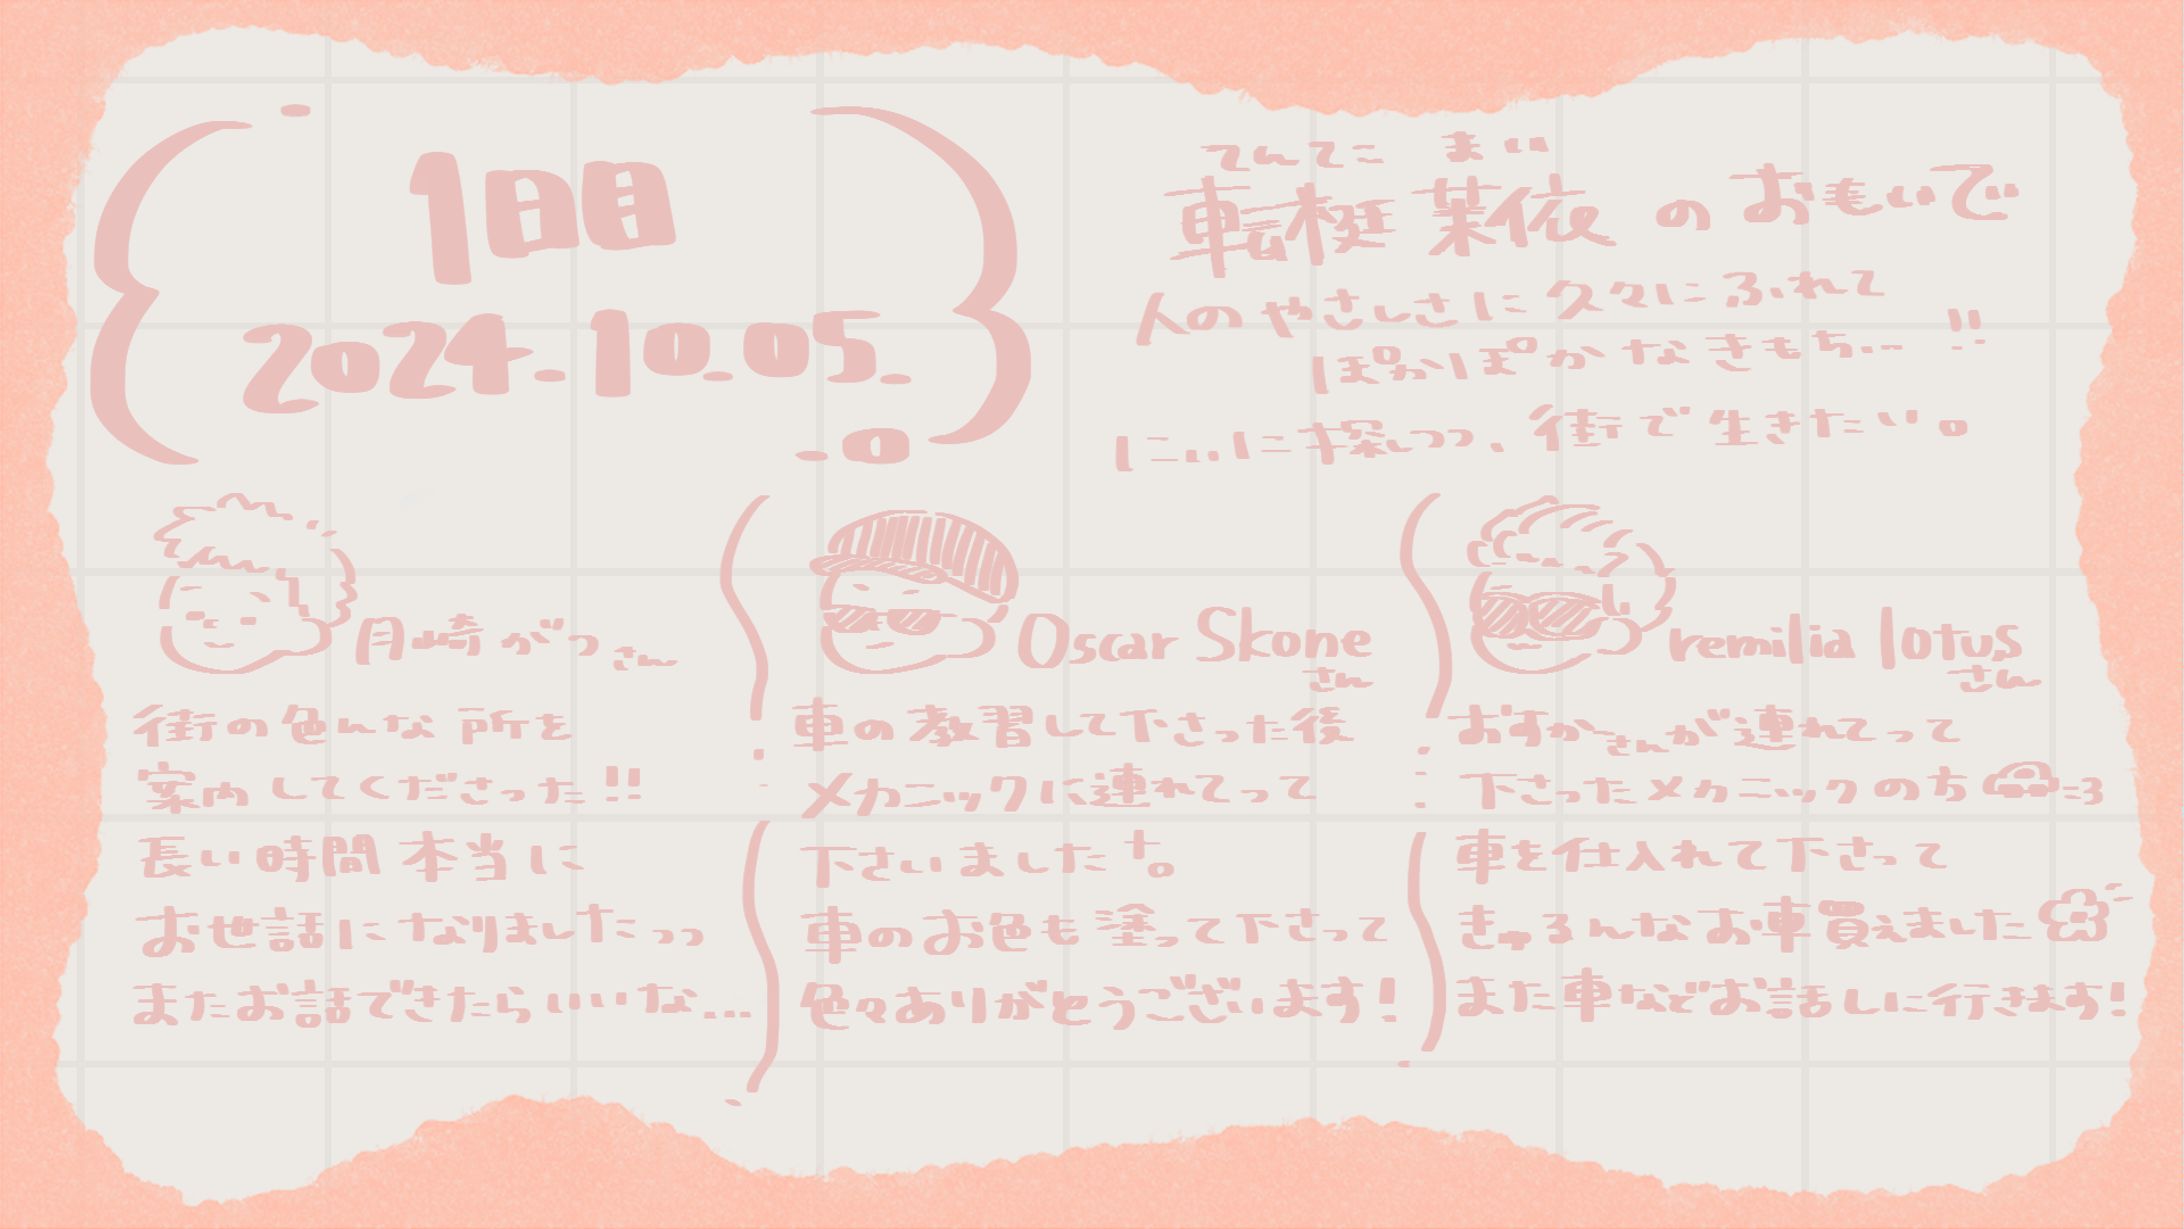 1日目
2024.10.05.
てんてこ まい
転梃 葉依 の おもいで
人の やさしさに 久々に ふれて
ぽかぽかなきもち…!!
にぃに探しつつ、街で生きたい。
月崎 がつ さん
街の色んな所を
案内してくださった!!
長い時間本当に
お世話になりましたっっ
またお話できたらいいな…
Oscar Skone
さん
車の教習して下さった後
メカニックに連れてって
下さいました。
車のお色も塗って下さって
色々ありがとうございます!
remilia lotus
さん
おすかーさんが連れてって
下さったメカニックのち =3
車を仕入れて下さって
きゅるんなお車買えました
また車などお話しに行きます!